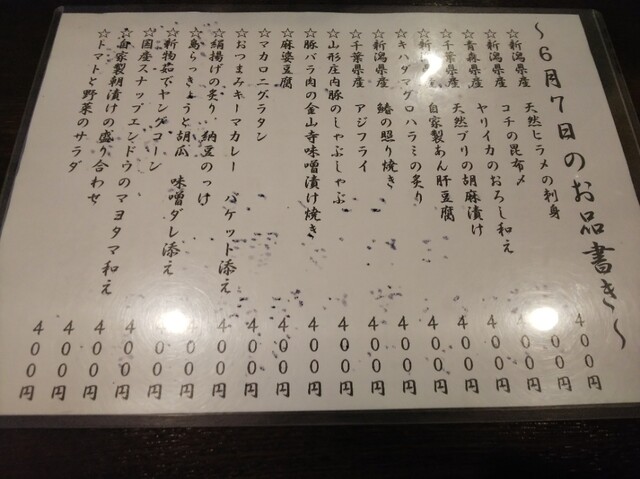 ～６月７日のお品書き～
☆新潟県産　天然ヒラメの刺身　４００円
☆新潟県産　コチの昆布〆　４００円
☆青森県産　ヤリイカのおろし和え　４００円
☆千葉県産　天然ブリの胡麻漬け　４００円
☆新潟県産　自家製あん肝豆腐　４００円
☆キハダマグロハラミの炙り　４００円
☆新潟県産　鰆の照り焼き　４００円
☆千葉県産　アジフライ　４００円
☆山形庄内豚のしゃぶしゃぶ　４００円
☆豚バラ肉の金山寺味噌漬け焼き　４００円
☆麻婆豆腐　４００円
☆マカロニグラタン　４００円
☆おつまみキーマカレー　バケット添え　４００円
☆絹揚げの炙り　納豆のっけ　４００円
☆島らっきょうと胡瓜　味噌ダレ添え　４００円
☆新物茹でヤングコーン　４００円
☆国産スナップエンドウのマヨタマ和え　４００円
☆自家製朝漬けの盛り合わせ　４００円
☆トマトと野菜のサラダ　４００円